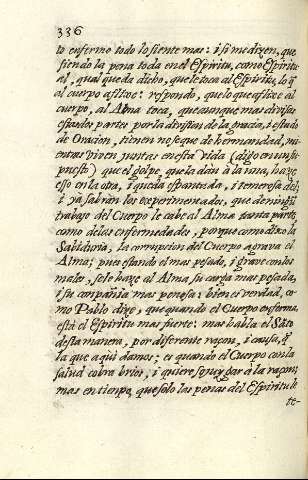 336
to enfermo todo lo siente mas: i si me dizen, que
siendo la pena toda en el Espiritu, como Espiritu-
al, qual queda dicho, que le toca al Espiritu, lo q̃
al cuerpo aflixe: respondo, que lo que aflixe al
cuerpo, al Alma toca, que aunque mas divisas
esten dos partes por la division de la gracia, i estado
de Oracion, tienen no se que de hermandad, mi-
entras viven juntas en esta vida (digo en un su-
puesto) que el golpe, que la dan à la una, haze
esso en la otra, i queda espantada, i temerosa del;
i ya sabràn los experimentados, que de ningũ
trabajo del Cuerpo le cabe al Alma tanta parte,
como de las enfermedades, porque como dixo la
Sabiduria, la corrupcion del Cuerpo agrava el
Alma; pues estando el mas pesado, i grave con los
males, se le haze al Alma su carga mas pesada,
i su compañia mas penosa; bien es verdad, co-
mo Pablo dize, que quando el Cuerpo enferma,
està el Espiritu mas fuerte; mas habla el Sãto
desta manera, por diferente raçon, i causa, q̃
la que aqui damos; es quando el Cuerpo con la
salud cobra brios, i quiere sojuzgar à la raçon;
mas en tiempo, que solo las penas del Espiritu le
te-